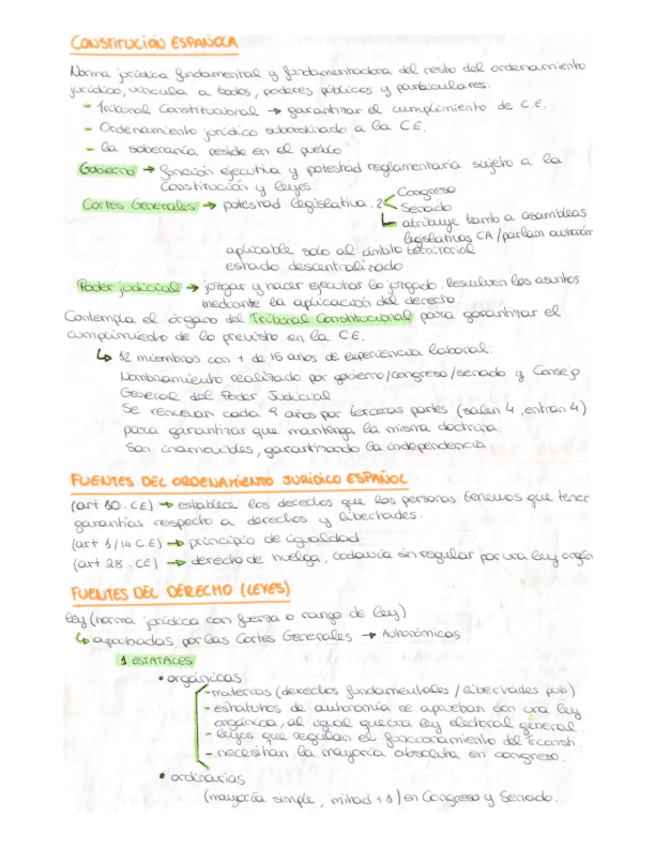 CONSTITUCIÓN ESPAÑOLA
Norma jurídica fundamental y fundamentadora del resto del ordenamiento
jurídico, vincula a todos, poderes públicos y particulares.
- Tribunal Constitucional → garantizar el cumplimiento de C.E.
- Ordenamiento jurídico subordinado a la CE.
- La soberanía reside en el pueblo
Gobierno → función ejecutiva y potestad reglamentaria sujeto a la
Constitución y leyes.
Cortes Generales → potestad legislativa. 2 Congreso
Senado
atribuye tamb a asambleas
legislativas CA / parlam autonóm
aplicable solo al ámbito territorial
estado descentralizado
Poder judicial → juzgar y hacer ejecutar lo juzgado. Resuelven los asuntos
mediante la aplicación del derecho.
Contempla el órgano del Tribunal Constitucional para garantizar el
cumplimiento de lo previsto en la CE.
↳ 12 miembros con + de 15 años de experiencia laboral.
Nombramiento realizado por gobierno/congreso/senado y Consejo
General del Poder Judicial
Se renuevan cada 9 años por terceras partes (salen 4, entran 4)
para garantizar que mantenga la misma doctrina.
Son inamovibles, garantizando la independencia
FUENTES DEL ORDENAMIENTO JURÍDICO ESPAÑOL
(art 10. CE) → establece los derechos que las personas tenemos que tener
garantías respecto a derechos y libertades.
(art 1/14 C.E) → principio de igualdad
(art 28. CE) → derecho de huelga, todavía sin regular por una ley orgán
FUENTES DEL DERECHO (LEYES)
Ley (norma jurídica con fuerza o rango de ley)
↳ aprobadas por las Cortes Generales → Autonómicos
1 ESTATALES
• orgánicas
- materias (derechos fundamentales / libertades pub)
- estatutos de autonomía se aprueban con una ley
orgánica, al igual que una ley electoral general.
- leyes que regulan el funcionamiento del T.consti.
- necesitan la mayoría absoluta en congreso.
• ordinarias
(mayoría simple, mitad + 1) en Congreso y Senado.